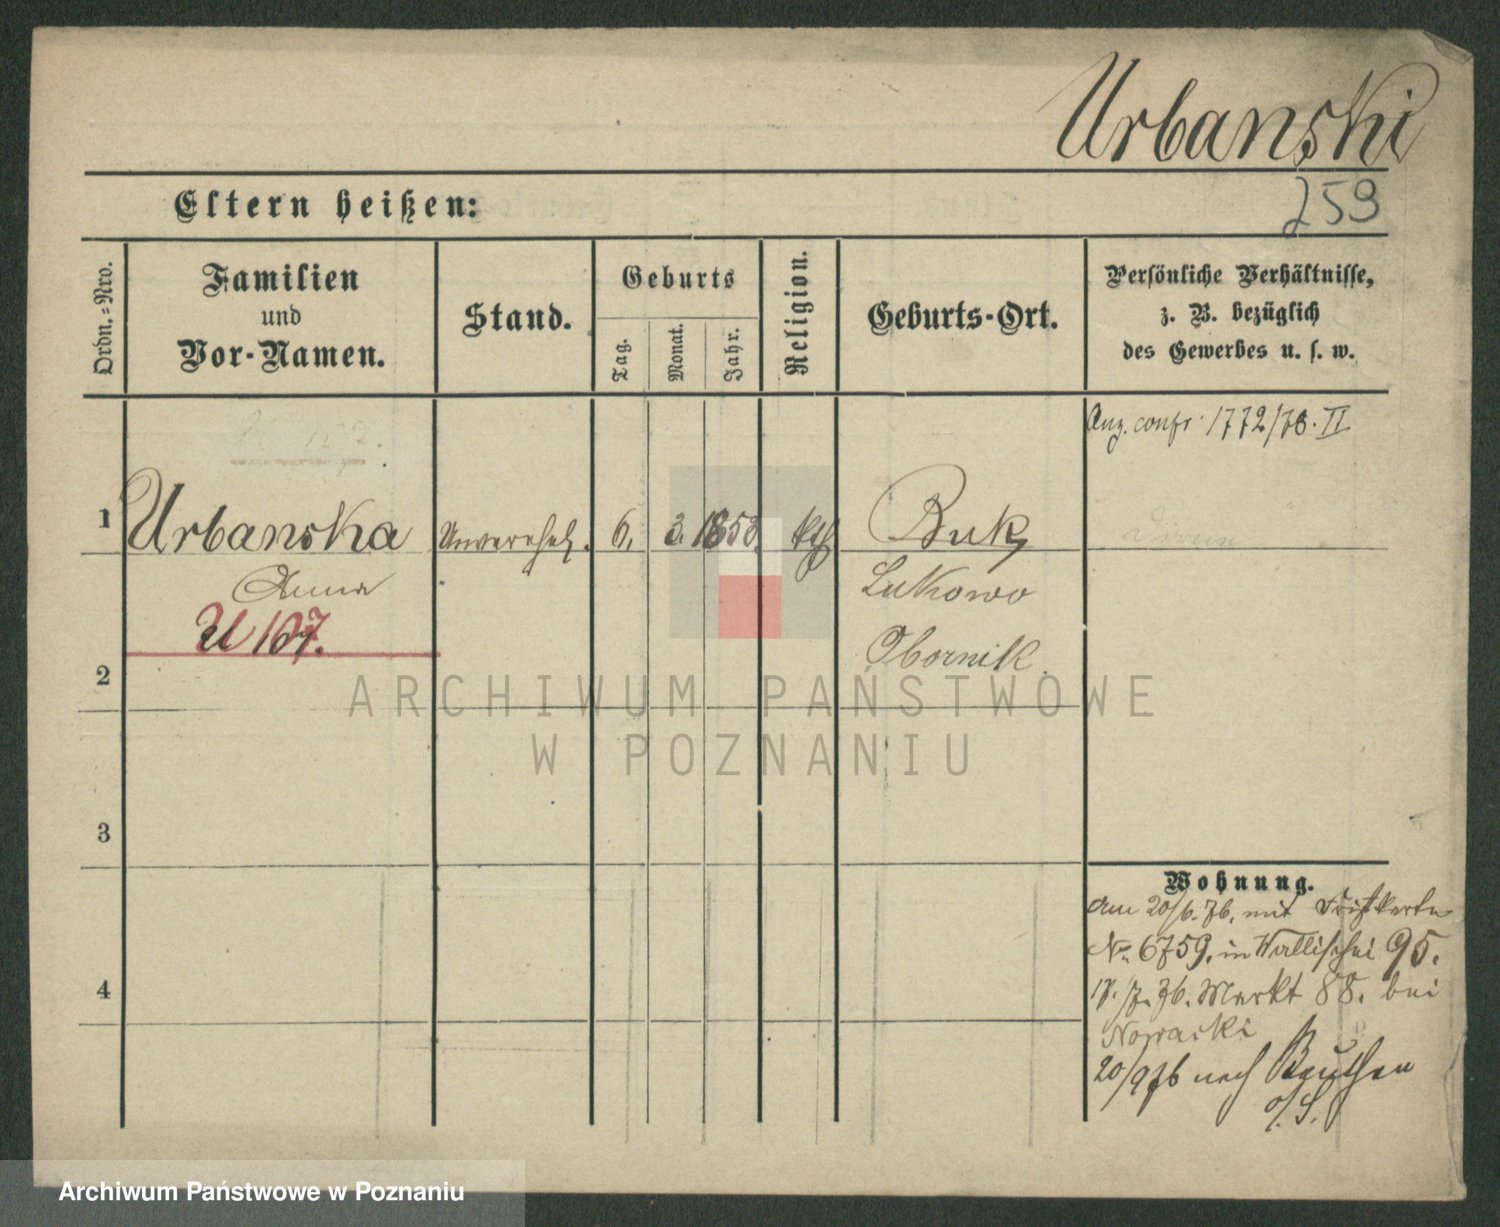 Urbanski
259
Eltern heißen:
Ordn.-Nro.
Familien
und
Vor-Namen.
Stand.
Geburts
Tag.
Monat.
Jahr.
Religion.
Geburts-Ort.
Persönliche Verhältnisse,
z. B. bezüglich
des Gewerbes u. s. w.
Anz. confr. 1772/78. II
1
Urbanska
Unverehel.
6.
3.
1853.
kth
Buk
Anna
Lukowo
U 107.
Obornik.
2
3
4
Wohnung.
Am 20/6. 76. mit
No. 6759. in Wallischei 95.
17./7. 76. Markt 88. bei
Nowacki
20/9 76 nach Beuthen
o/S.
ARCHIWUM PAŃSTWOWE
W POZNANIU
Archiwum Państwowe w Poznaniu